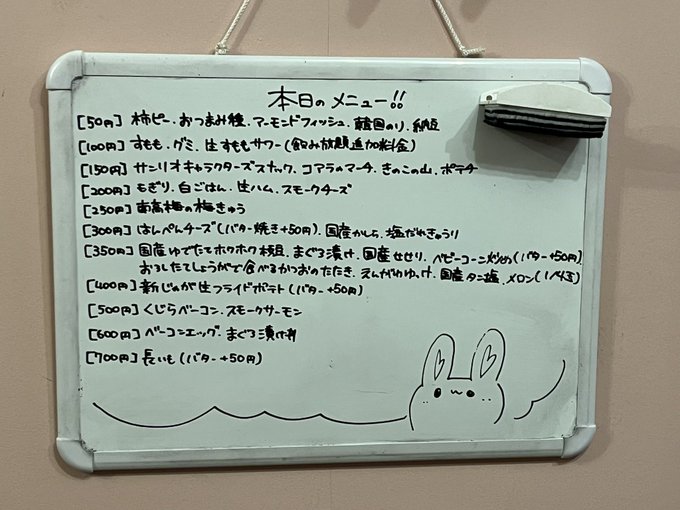 本日のメニュー!!
[50円] 柿ピー、おつまみ種、アーモンドフィッシュ、韓国のり、納豆
[100円] すもも、グミ、生すももサワー(飲み放題追加料金)
[150円] サンリオキャラクターズスナック、コアラのマーチ、きのこの山、ポテチ
[200円] おにぎり、白ごはん、生ハム、スモークチーズ
[250円] 南高梅の梅きゅう
[300円] はんぺんチーズ(バター焼き+50円)、国産かしら、塩だれきゅうり
[350円] 国産ゆでたてホクホク枝豆、まぐろ漬け、国産せせり、ベビーコーン炒め(バター+50円)
おろしたてしょうがで食べるかつおのたたき、えんがわゆっけ、国産タン塩、メロン
[400円] 新じゃが生フライドポテト(バター+50円)
[500円] くじらベーコン、スモークサーモン
[600円] ベーコンエッグ、まぐろ漬け丼
[700円] 長いも(バター+50円)